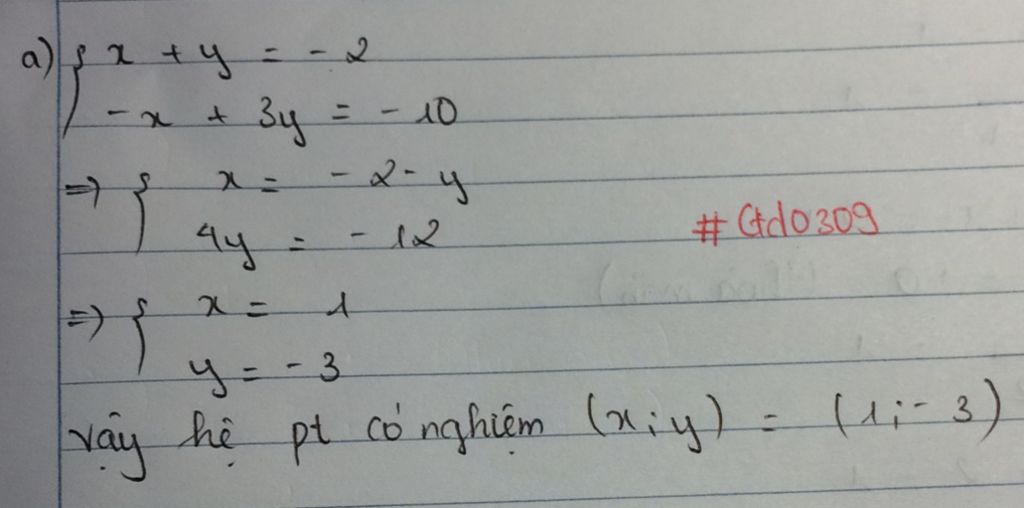 a) { x + y = - 2
- x + 3y = - 10
=> { x = - 2 - y
4y = - 12
# Gtd0309
=> { x = 1
y = - 3
vậy hệ pt có nghiệm (x; y) = (1; - 3)